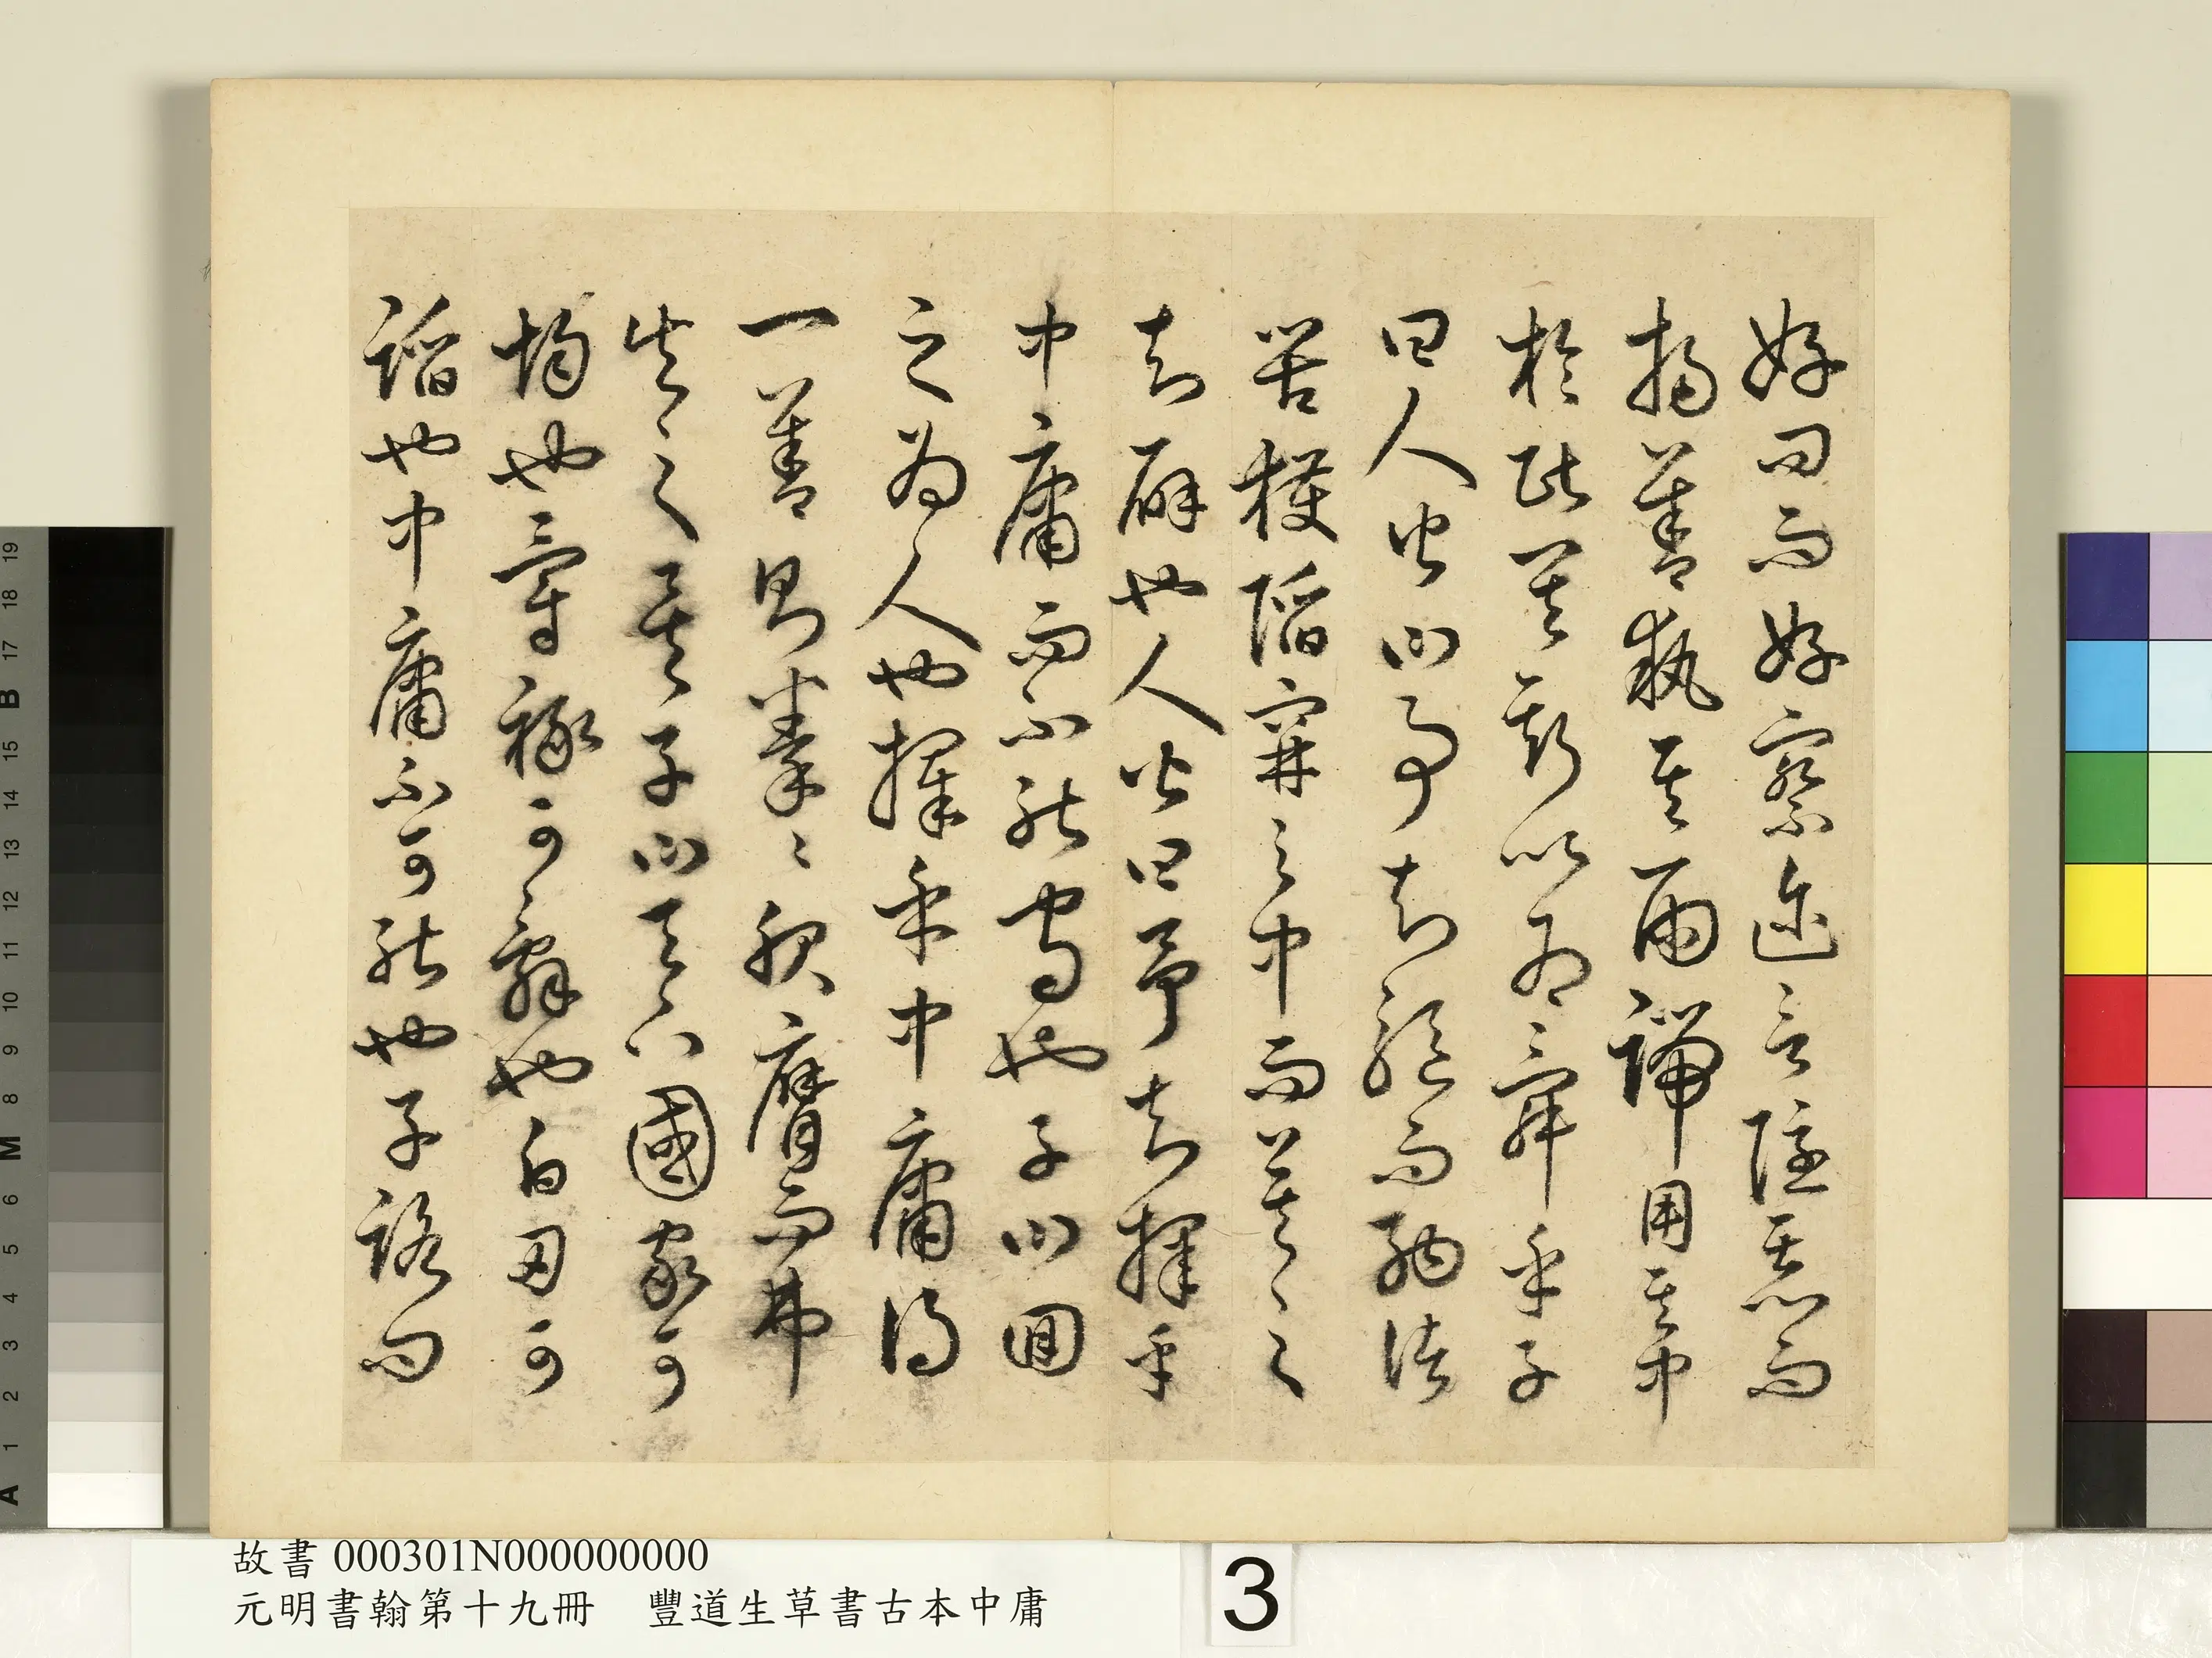 好問而好察邇言隱惡而
揚善執其兩端用其中
於民其斯以為舜乎子
曰人皆曰予知驅而納諸
罟擭陷穽之中而莫之
知辟也人皆曰予知擇乎
中庸而不能守也子曰回
之為人也擇乎中庸得
一善則拳〻服膺而弗
失之矣子曰天下國家可
均也爵祿可辭也白刃可
蹈也中庸不可能也子路問
故書 000301N000000000
元明書翰第十九冊　豐道生草書古本中庸
3
A 1 2 3 4 5 6 M 8 9 10 11 12 13 14 15 B 17 18 19